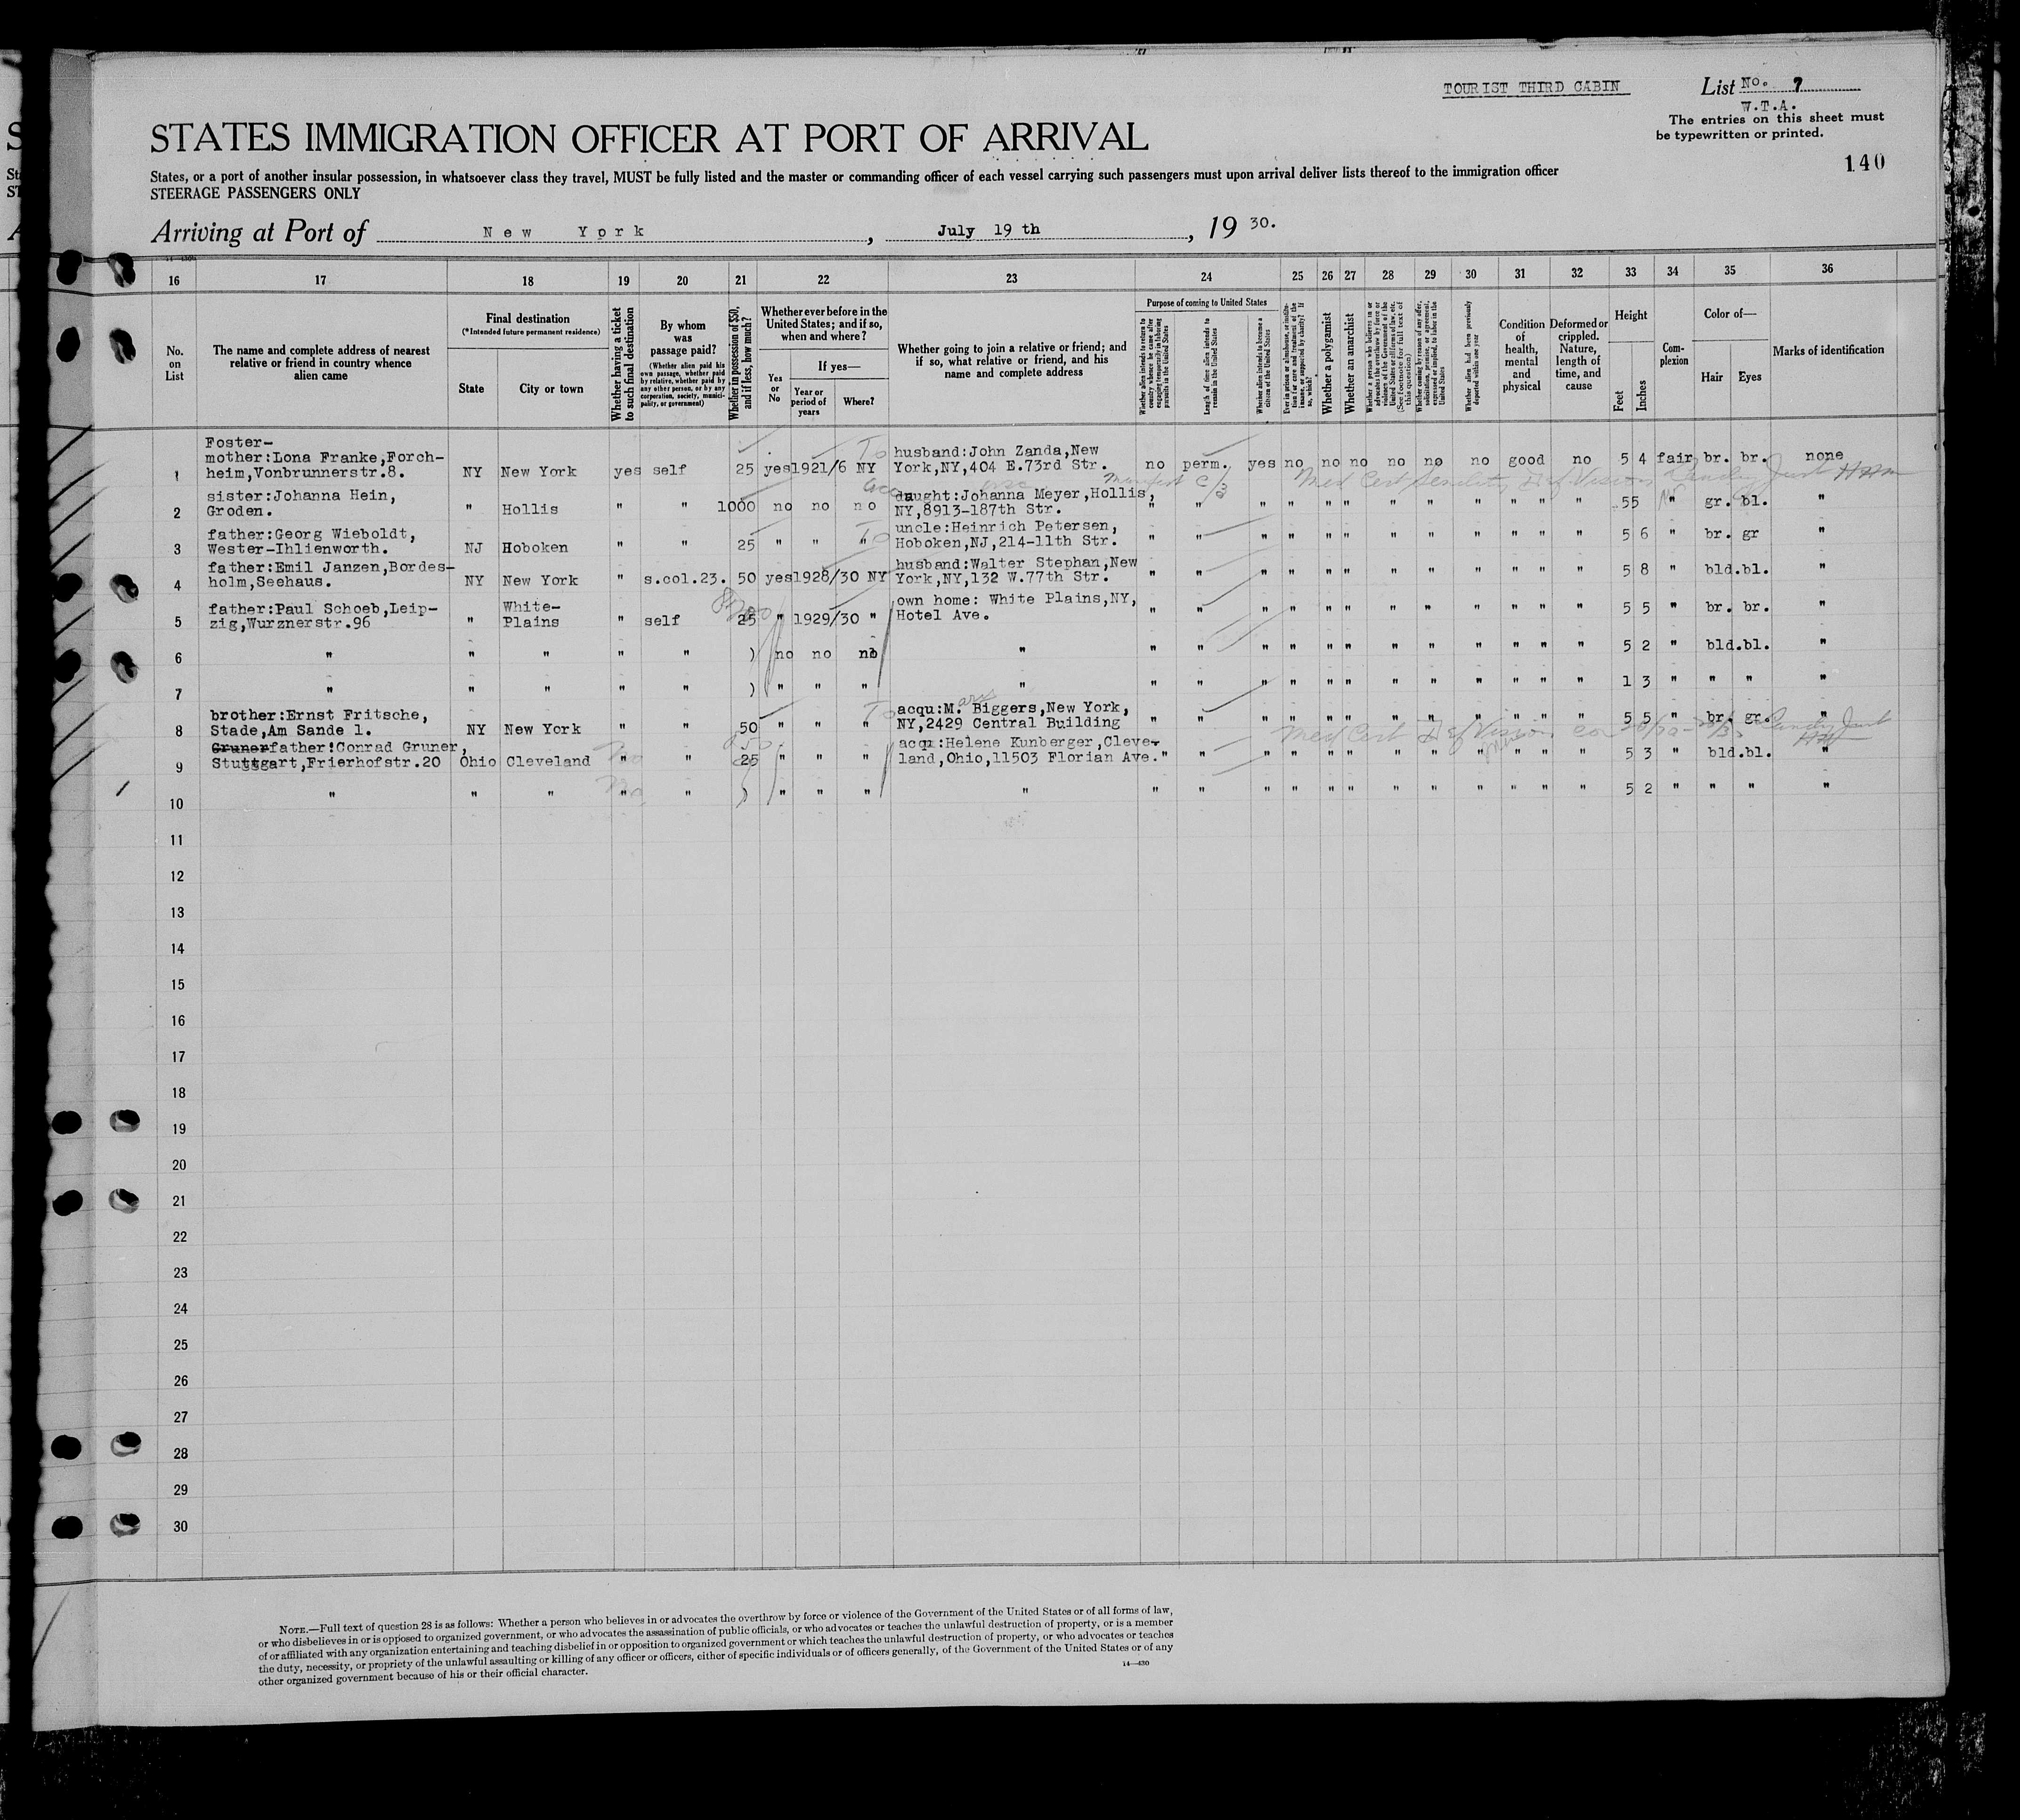 TOURIST THIRD CABIN
List No. 7
W.T.A.
The entries on this sheet must
be typewritten or printed.
140
STATES IMMIGRATION OFFICER AT PORT OF ARRIVAL
States, or a port of another insular possession, in whatsoever class they travel, MUST be fully listed and the master or commanding officer of each vessel carrying such passengers must upon arrival deliver lists thereof to the immigration officer
STEERAGE PASSENGERS ONLY
Arriving at Port of New York, July 19 th, 19 30.
16 17 18 19 20 21 22 23 24 25 26 27 28 29 30 31 32 33 34 35 36
No. on List
The name and complete address of nearest relative or friend in country whence alien came
Final destination
(*Intended future permanent residence)
State
City or town
Whether having a ticket to such final destination
By whom was passage paid?
(Whether alien paid his own passage, whether paid by relative, whether paid by any other person, or by any corporation, society, municipality, or government)
Whether in possession of $50, and if less, how much?
Whether ever before in the United States; and if so, when and where?
Yes or No
If yes—
Year or period of years
Where?
Whether going to join a relative or friend; and if so, what relative or friend, and his name and complete address
Purpose of coming to United States
Length of time alien intends to remain in the United States
Whether alien intends to become a citizen of the United States
Whether a polygamist
Whether an anarchist
Whether alien had been previously deported within one year
Condition of health, mental and physical
Deformed or crippled. Nature, length of time, and cause
Height
Feet
Inches
Complexion
Color of—
Hair
Eyes
Marks of identification
Foster-
mother:Lona Franke,Forch- husband:John Zanda,New
1 heim,Vonbrunnerstr.8. NY New York yes self 25 yes 1921/6 NY York,NY,404 E.73rd Str. no perm. yes no no no no no no good no 5 4 fair br. br. none
Med Cert Senility Def Vision
sister:Johanna Hein, daught:Johanna Meyer,Hollis,
2 Groden. " Hollis " " 1000 no no no NY,8913-187th Str. " " " " " " " " " " " " 55 " gr. bl. "
father:Georg Wieboldt, To uncle:Heinrich Petersen,
3 Wester-Ihlienworth. NJ Hoboken " " 25 " " " Hoboken,NJ,214-11th Str. " " " " " " " " " " " " 5 6 " br. gr "
father:Emil Janzen,Bordes- husband:Walter Stephan,New
4 holm,Seehaus. NY New York " s.col.23. 50 yes 1928/30 NY York,NY,132 W.77th Str. " " " " " " " " " " " " 5 8 " bld.bl. "
father:Paul Schoeb,Leip- White- own home: White Plains,NY,
5 zig,Wurznerstr.96 " Plains " self 25 " 1929/30 " Hotel Ave. " " " " " " " " " " " " 5 5 " br. br. "
6 " " " " " ) no no no " " " " " " " " " " " " " 5 2 " bld.bl. "
7 " " " " " ) " " " " " " " " " " " " " " " " 1 3 " " " "
brother:Ernst Fritsche, To acqu:M. Biggers,New York,
8 Stade,Am Sande 1. NY New York " " 50 " " " NY,2429 Central Building " " " " " " " " " " " " 5 5 " br. gr. "
Med Cert Def Vision
Gruner father:Conrad Gruner, acqu:Helene Kunberger,Cleve-
9 Stuttggart,Frierhofstr.20 Ohio Cleveland " " 25 " " " land,Ohio,11503 Florian Ave. " " " " " " " " " " " " 5 3 " bld.bl. "
10 " " " " " ) " " " " " " " " " " " " " " " " 5 2 " " " "
11
12
13
14
15
16
17
18
19
20
21
22
23
24
25
26
27
28
29
30
NOTE.—Full text of question 28 is as follows: Whether a person who believes in or advocates the overthrow by force or violence of the Government of the United States or of all forms of law,
or who disbelieves in or is opposed to organized government, or who advocates the assassination of public officials, or who advocates or teaches the unlawful destruction of property, or is a member
of or affiliated with any organization entertaining and teaching disbelief in or opposition to organized government or which teaches the unlawful destruction of property, or who advocates or teaches
the duty, necessity, or propriety of the unlawful assaulting or killing of any officer or officers, either of specific individuals or of officers generally, of the Government of the United States or of any
other organized government because of his or their official character.
14—430